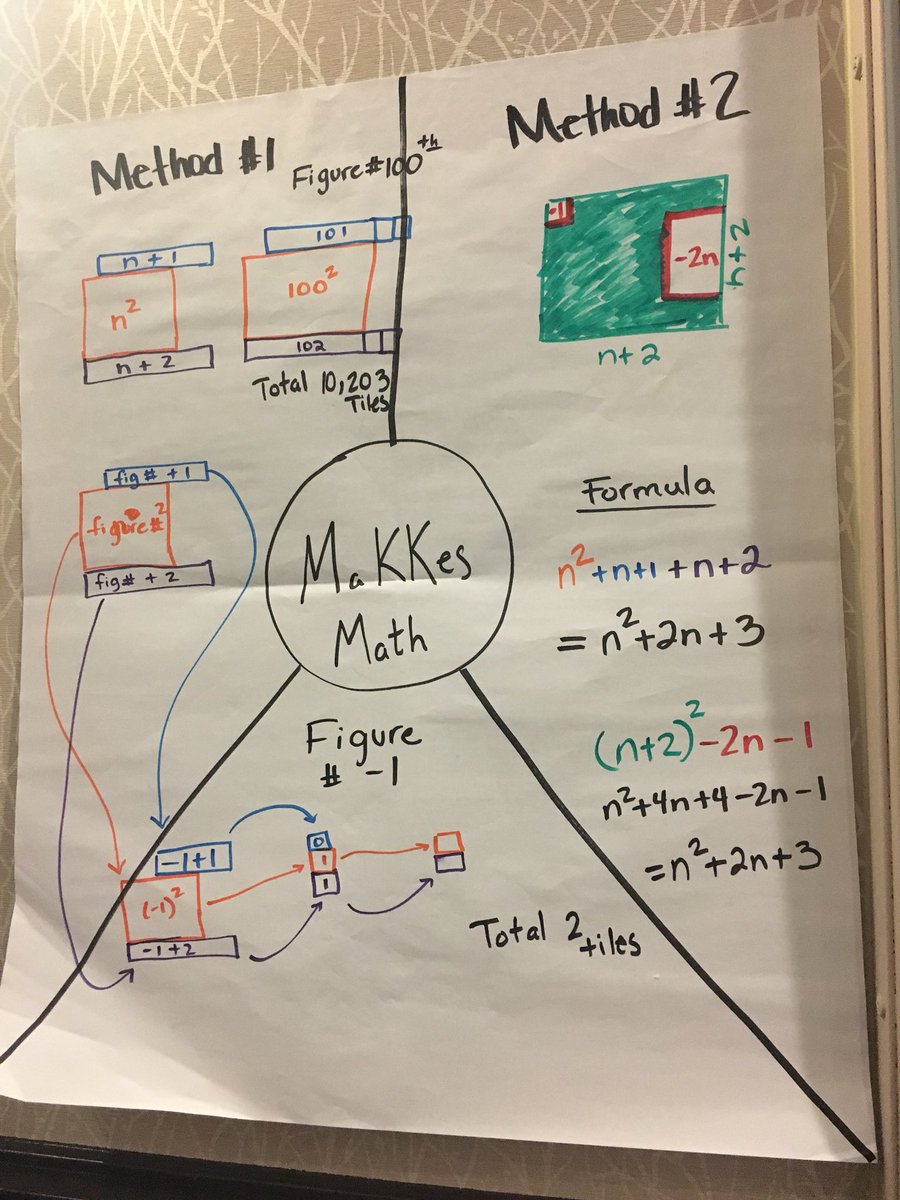 Method #1
Figure #100th
n + 1
n²
n + 2
101
100²
102
Total 10,203
Tiles
fig# + 1
figure#²
fig# + 2
Method #2
-1
-2n
n+2
n+2
MaKKes
Math
Formula
n²+n+1+n+2
= n²+2n+3
(n+2)²-2n-1
n²+4n+4-2n-1
=n²+2n+3
Figure
# -1
-1+1
(-1)²
-1+2
0
1
1
Total 2
tiles